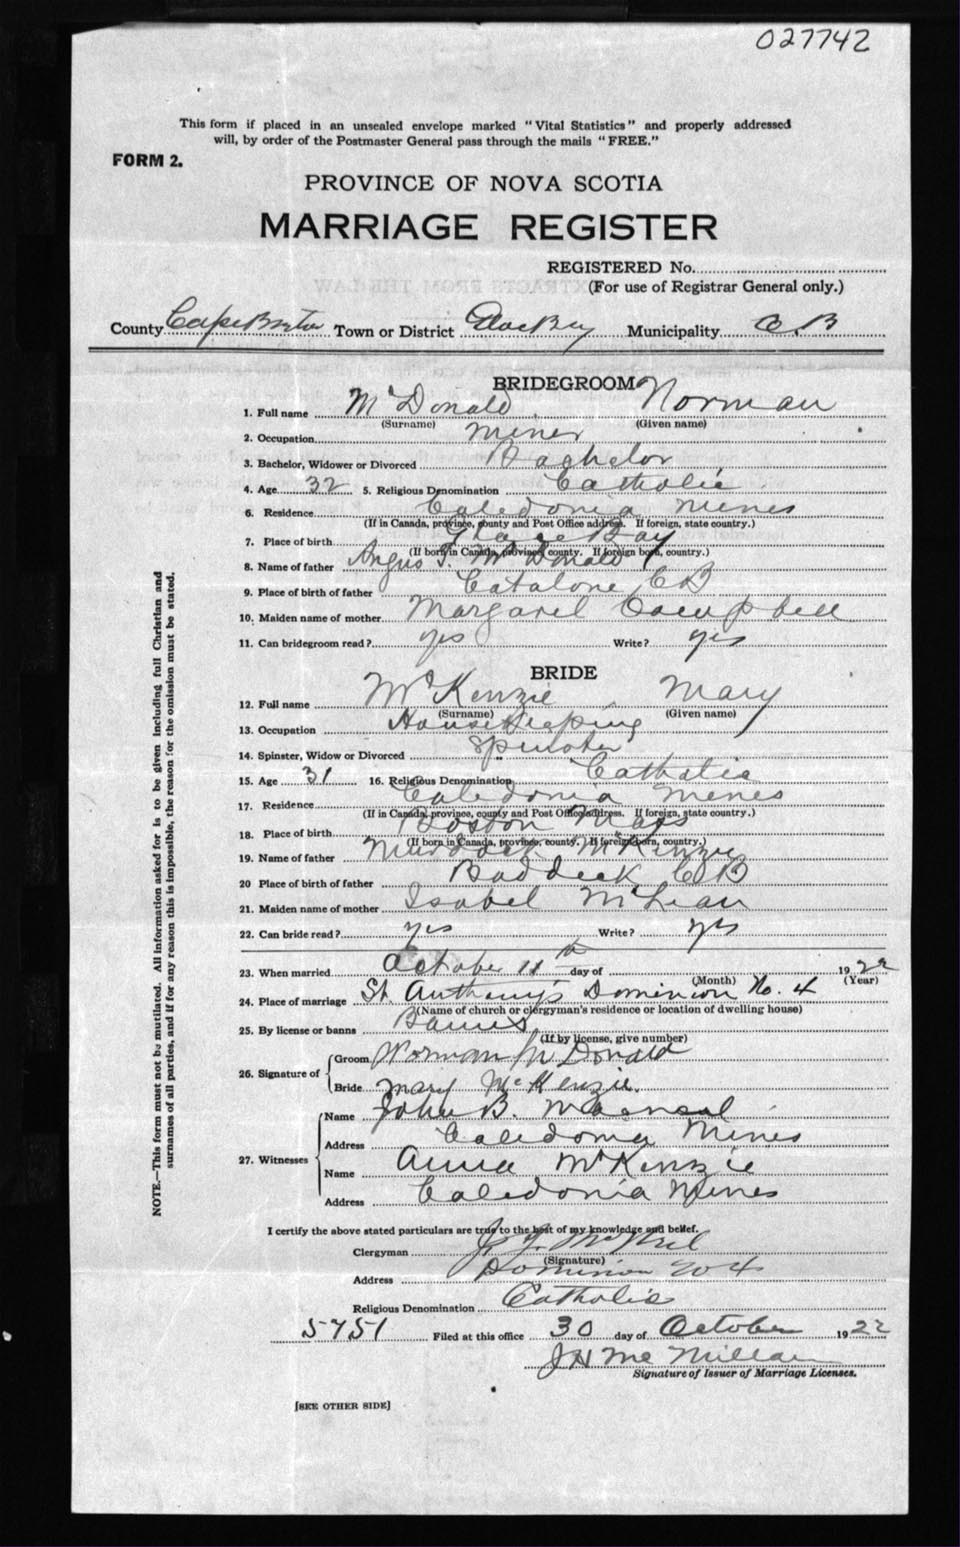 027742
This form if placed in an unsealed envelope marked "Vital Statistics" and properly addressed
will, by order of the Postmaster General pass through the mails "FREE."
FORM 2.
PROVINCE OF NOVA SCOTIA
MARRIAGE REGISTER
REGISTERED No.
(For use of Registrar General only.)
County Cape Breton Town or District Glace Bay Municipality C. B
BRIDEGROOM
1. Full name McDonald Norman
(Surname) (Given name)
2. Occupation Miner
3. Bachelor, Widower or Divorced Bachelor
4. Age 32 5. Religious Denomination Catholic
6. Residence Caledonia Mines
(If in Canada, province, county and Post Office address. If foreign, state country.)
7. Place of birth Glace Bay
(If born in Canada, province, county. If foreign born, country.)
8. Name of father Angus J. McDonald
9. Place of birth of father Catalone CB
10. Maiden name of mother Margaret Campbell
11. Can bridegroom read? yes Write? yes
BRIDE
12. Full name McKenzie Mary
(Surname) (Given name)
13. Occupation Housekeeping
14. Spinster, Widow or Divorced Spinster
15. Age 31 16. Religious Denomination Catholic
17. Residence Caledonia Mines
(If in Canada, province, county and Post Office address. If foreign, state country.)
18. Place of birth Boston Mass
(If born in Canada, province, county. If foreign born, country.)
19. Name of father Murdock McKenzie
20 Place of birth of father Baddeck CB
21. Maiden name of mother Isabel McLean
22. Can bride read? yes Write? yes
23. When married October 11th day of 1922
(Month) (Year)
24. Place of marriage St. Anthony's Dominion No. 4
(Name of church or clergyman's residence or location of dwelling house)
25. By license or banns Banns
(If by license, give number)
26. Signature of Groom Norman McDonald
Bride Mary McKenzie.
27. Witnesses Name John B.
Address Caledonia Mines
Name Anna McKenzie
Address Caledonia Mines
I certify the above stated particulars are true to the best of my knowledge and belief.
Clergyman McNeil
(Signature)
Address Dominion No 4
Religious Denomination Catholic
5751 Filed at this office 30 day of October 1922
JH McMillan
Signature of Issuer of Marriage Licenses.
[SEE OTHER SIDE]
NOTE.—This form must not be mutilated. All information asked for is to be given including full Christian and
surnames of all parties, and if for any reason this is impossible, the reason for the omission must be stated.